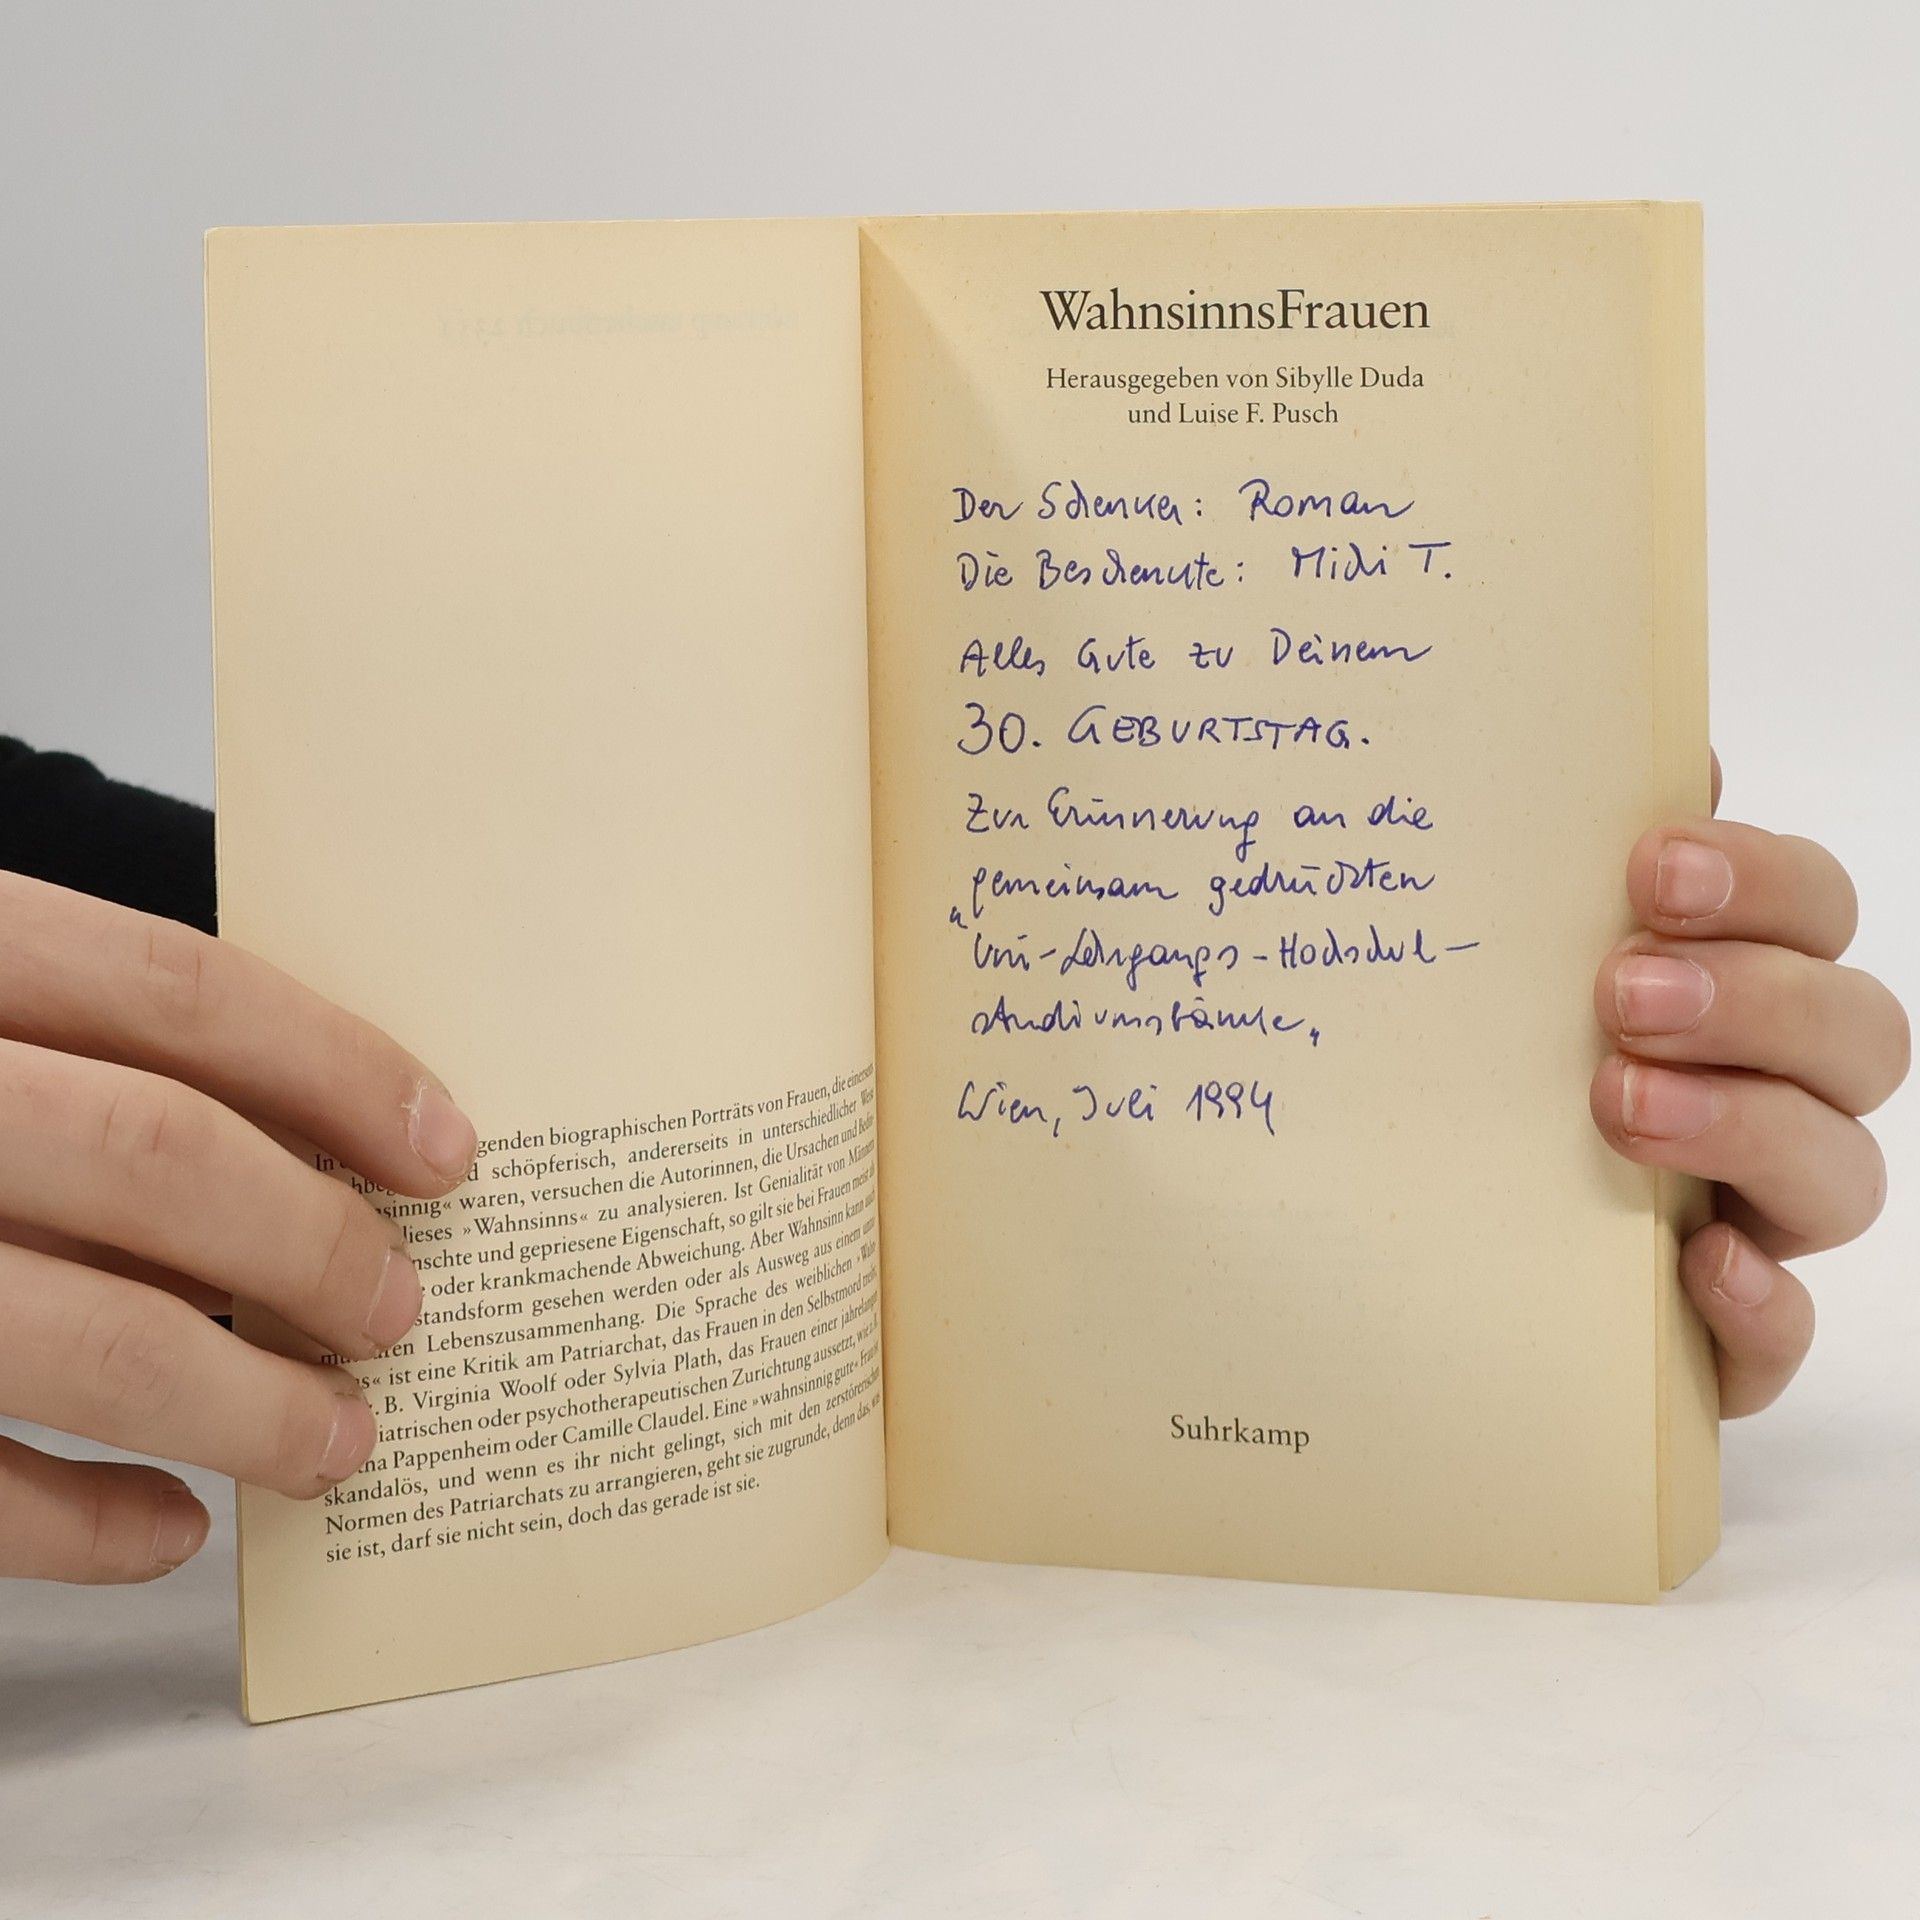 In genden biographischen Porträts von Frauen, die einerseits
schöpferisch, andererseits in unterschiedlicher Weise
sinnig« waren, versuchen die Autorinnen, die Ursachen und
dieses »Wahnsinns« zu analysieren. Ist Genialität von Männern
nschte und gepriesene Eigenschaft, so gilt sie bei Frauen meist als
oder krankmachende Abweichung. Aber Wahnsinn kann auch
standsform gesehen werden oder als Ausweg aus einem
Lebenszusammenhang. Die Sprache des weiblichen
ist eine Kritik am Patriarchat, das Frauen in den Selbstmord treibt,
B. Virginia Woolf oder Sylvia Plath, das Frauen einer jahrelangen
iatrischen oder psychotherapeutischen Zurichtung aussetzt, wie z. B.
Pappenheim oder Camille Claudel. Eine »wahnsinnig gute« Frau ist
skandalös, und wenn es ihr nicht gelingt, sich mit den zerstörerischen
Normen des Patriarchats zu arrangieren, geht sie zugrunde, denn das, was
sie ist, darf sie nicht sein, doch das gerade ist sie.
WahnsinnsFrauen
Herausgegeben von Sibylle Duda
und Luise F. Pusch
Der Schenker: Roman
Die Beschenkte: Michi T.
Alles Gute zu Deinem
30. GEBURTSTAG.
Zur Erinnerung an die
gemeinsam gedrückten
„Uni-Lehrgangs-Hochschul-
studiumsbänke„
Wien, Juli 1994
Suhrkamp